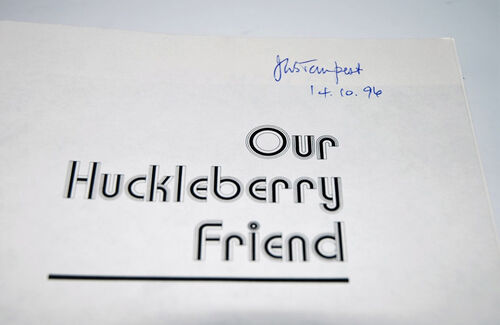 JWS Tempest
14.10.96
Our
Huckleberry
Friend